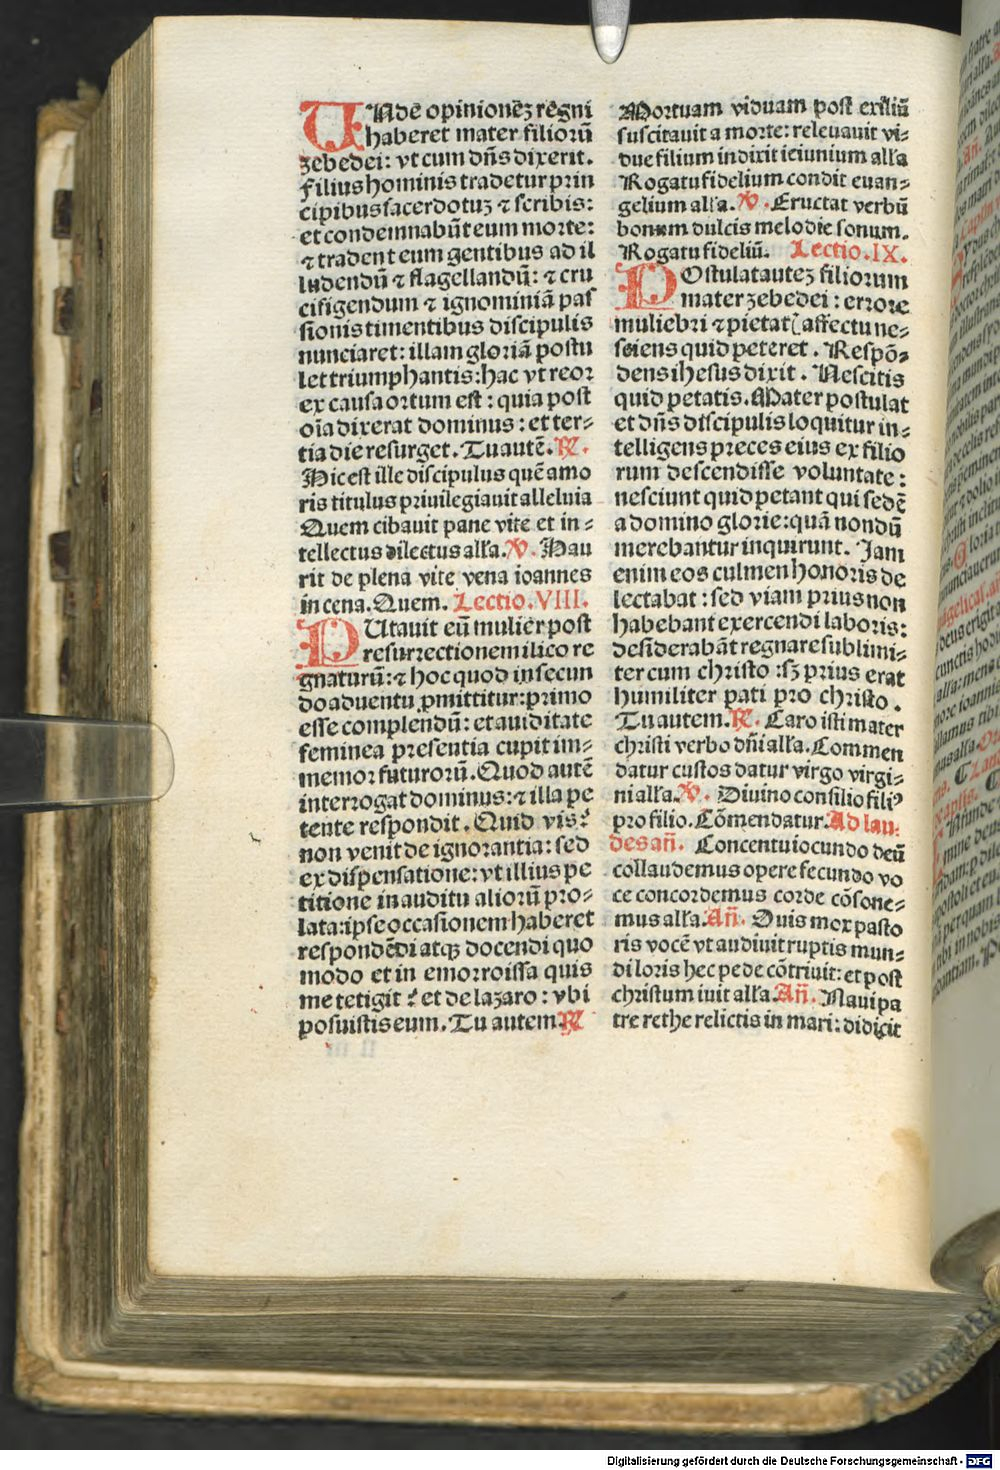 UNde opinionēꝫ regni
haberet mater filiorū
zebedei: vt cum dn̄s dixerit.
filius hominis tradetur prin
cipibus sacerdotuꝫ ⁊ scribis:
et condemnabūt eum morte:
⁊ tradent eum gentibus ad il
ludendū ⁊ flagellandū: ⁊ cru
cifigendum ⁊ ignominiā pas
sionis timentibus discipulis
nunciaret: illam gloriā postu
let triumphantis: hac vt reor
ex causa ortum est: quia post
oīa dixerat dominus: et ter⸗
tia die resurget. Tu autē. R̷.
Hic est ille discipulus quē amo
ris titulus priuilegiauit alleluia
Quem cibauit pane vite et in⸗
tellectus dilectus alľa. V̷. Hau
rit de plena vite vena ioannes
in cena. Quem. Lectio. VIII.
PUtauit eū mulier post
resurrectionem ilico re
gnaturū: ⁊ hoc quod in secun
do aduentu ꝓmittitur: primo
esse complendū: et auiditate
feminea presentia cupit im⸗
memor futurorū. Quod autē
interrogat dominus: ⁊ illa pe
tente respondit. Quid vis?
non venit de ignorantia: sed
ex dispensatione: vt illius pe
titione in auditu aliorū pro⸗
lata: ipse occasionem haberet
respondēdi atqꝫ docendi quo
modo et in emorroissa quis
me tetigit? et de lazaro: vbi
posuistis eum. Tu autem. R̷
Mortuam viduam post exiliū
suscitauit a morte: releuauit vi⸗
due filium indixit ieiunium alľa
Rogatu fidelium condit euan⸗
gelium alľa. V̷. Eructat verbū
bonum dulcis melodie sonum.
Rogatu fideliū. Lectio. IX.
POstulat auteꝫ filiorum
mater zebedei: errore
muliebri ⁊ pietatꝭ affectu ne⸗
sciens quid peteret. Respō⸗
dens ihesus dixit. Nescitis
quid petatis. Mater postulat
et dn̄s discipulis loquitur in⸗
telligens preces eius ex filio
rum descendisse voluntate:
nesciunt quid petant qui sedē
a domino glorie: quā nondū
merebantur inquirunt. Jam
enim eos culmen honoris de
lectabat: sed viam prius non
habebant exercendi laboris:
desiderabāt regnare sublimi⸗
ter cum christo: sꝫ prius erat
humiliter pati pro christo.
Tu autem. R̷. Caro isti mater
christi verbo dn̄i alľa. Commen
datur custos datur virgo virgi⸗
ni alľa. V̷. Diuino consilio filiꝰ
pro filio. Cōmendatur. Ad lau⸗
des añ. Concentu iocundo deū
collaudemus opere fecundo vo
ce concordemus corde cōsone⸗
mus alľa. Añ. Ouis mox pasto
ris vocē vt audiuit ruptis mun⸗
di loris hec pede cōtriuit: et post
christum iuit alľa. Añ. Naui pa
tre rethe relictis in mari: didicit
Digitalisierung gefördert durch die Deutsche Forschungsgemeinschaft - DFG